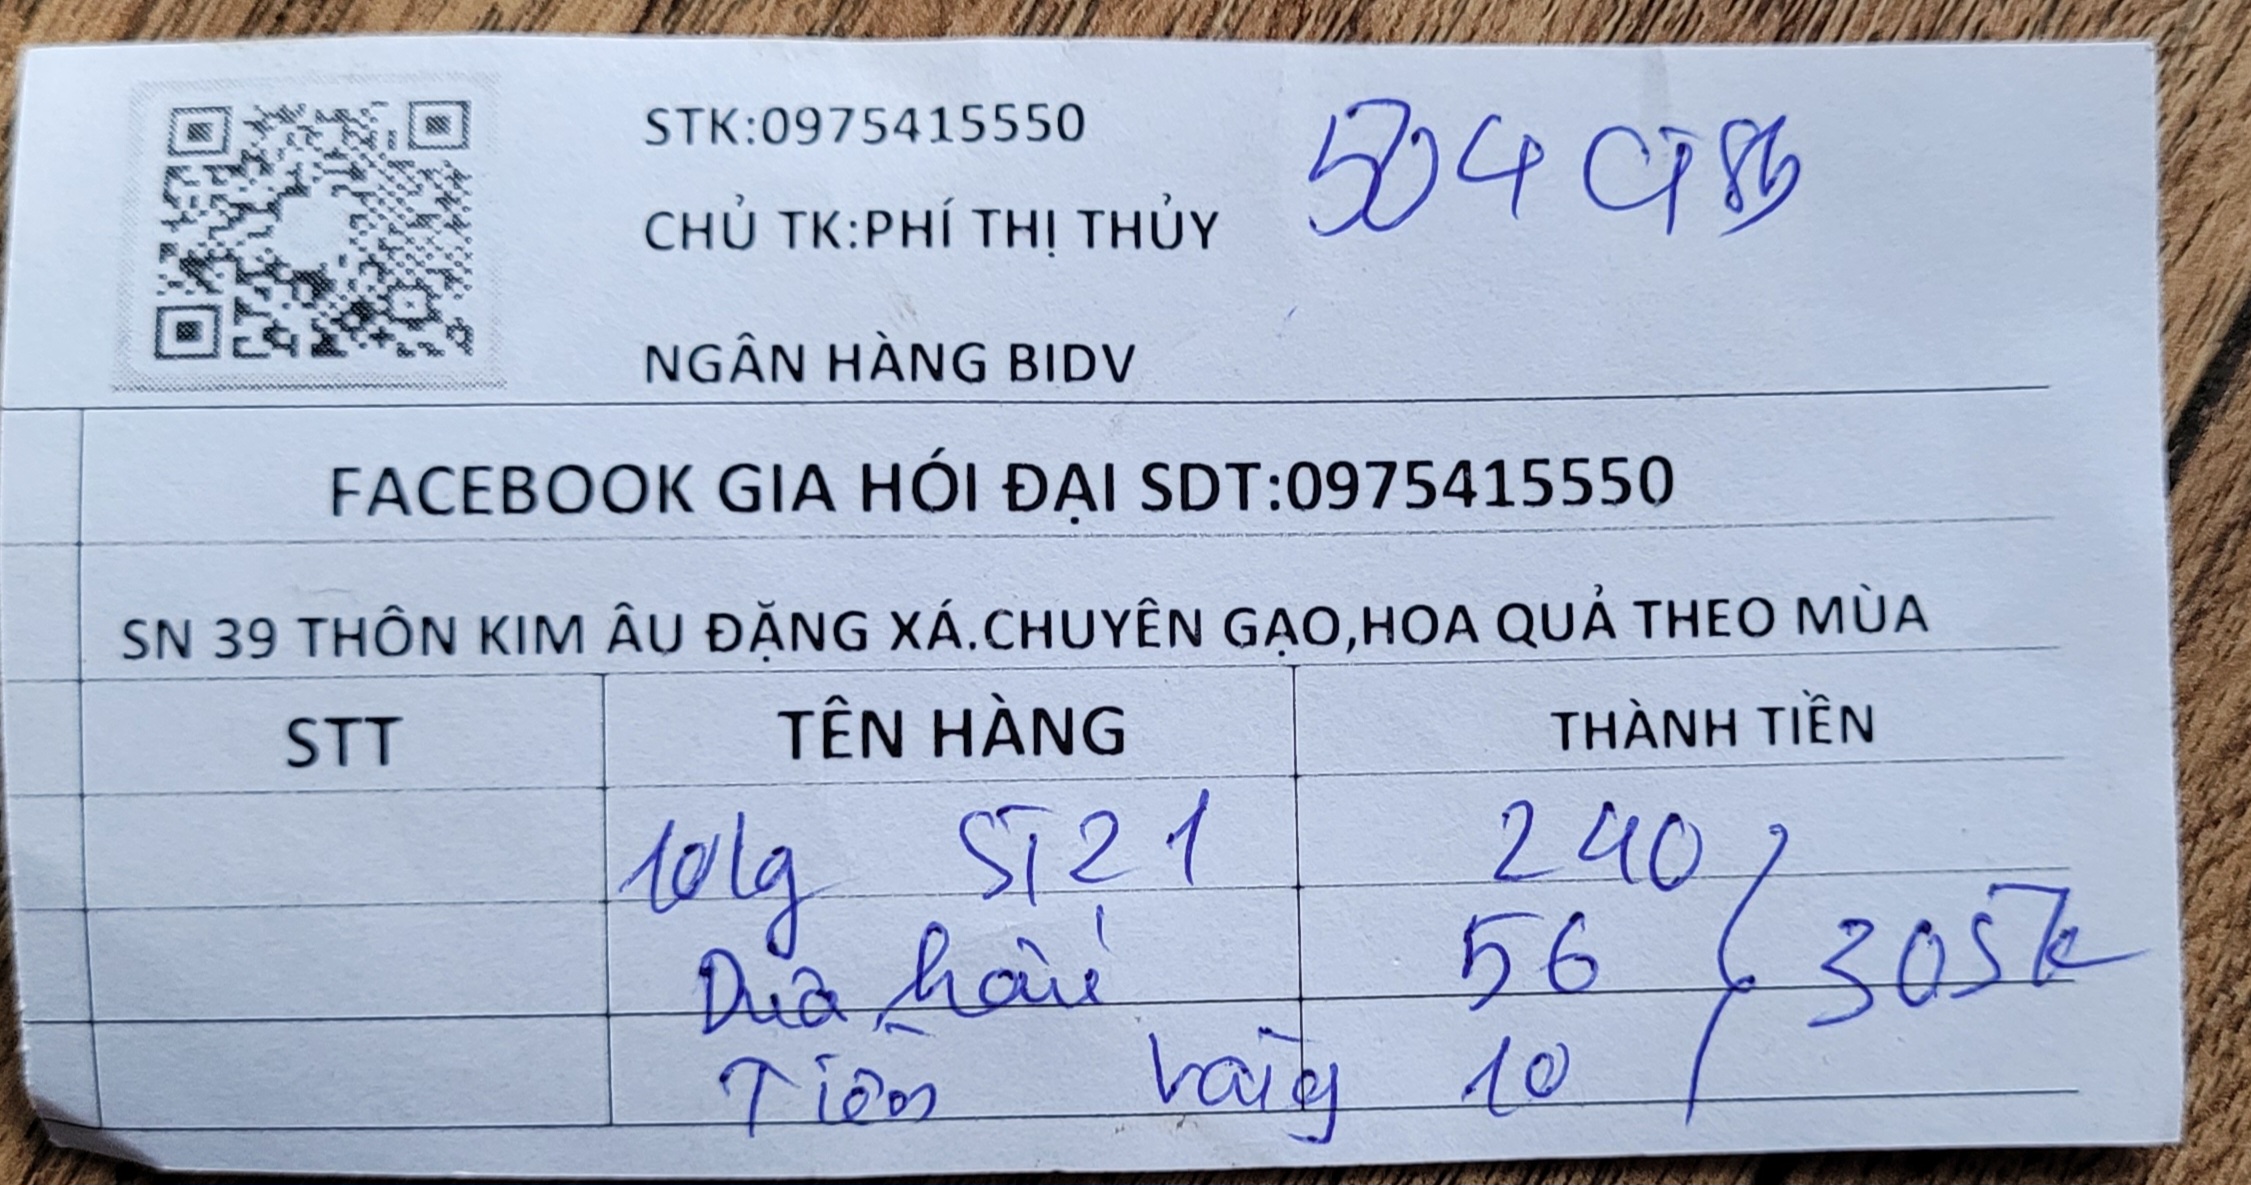 STK:0975415550
504 CT8B
CHỦ TK:PHÍ THỊ THỦY
NGÂN HÀNG BIDV
FACEBOOK GIA HÓI ĐẠI SDT:0975415550
SN 39 THÔN KIM ÂU ĐẶNG XÁ.CHUYÊN GẠO,HOA QUẢ THEO MÙA
STT TÊN HÀNG THÀNH TIỀN
10kg ST21 240
Dưa hấu 56 305k
Tiền hàng 10